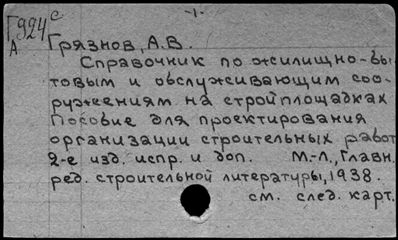 -1-
Г924с
А
Грязнов, А.В.
Справочник по жилищно-бы-
товым и обслуживающим соо-
ружениям на стройплощадках
Пособие для проектирования
организации строительных работ
2-е изд. испр. и доп. М.-Л., Главн.
ред. строительной литературы, 1938.
см. след. карт.